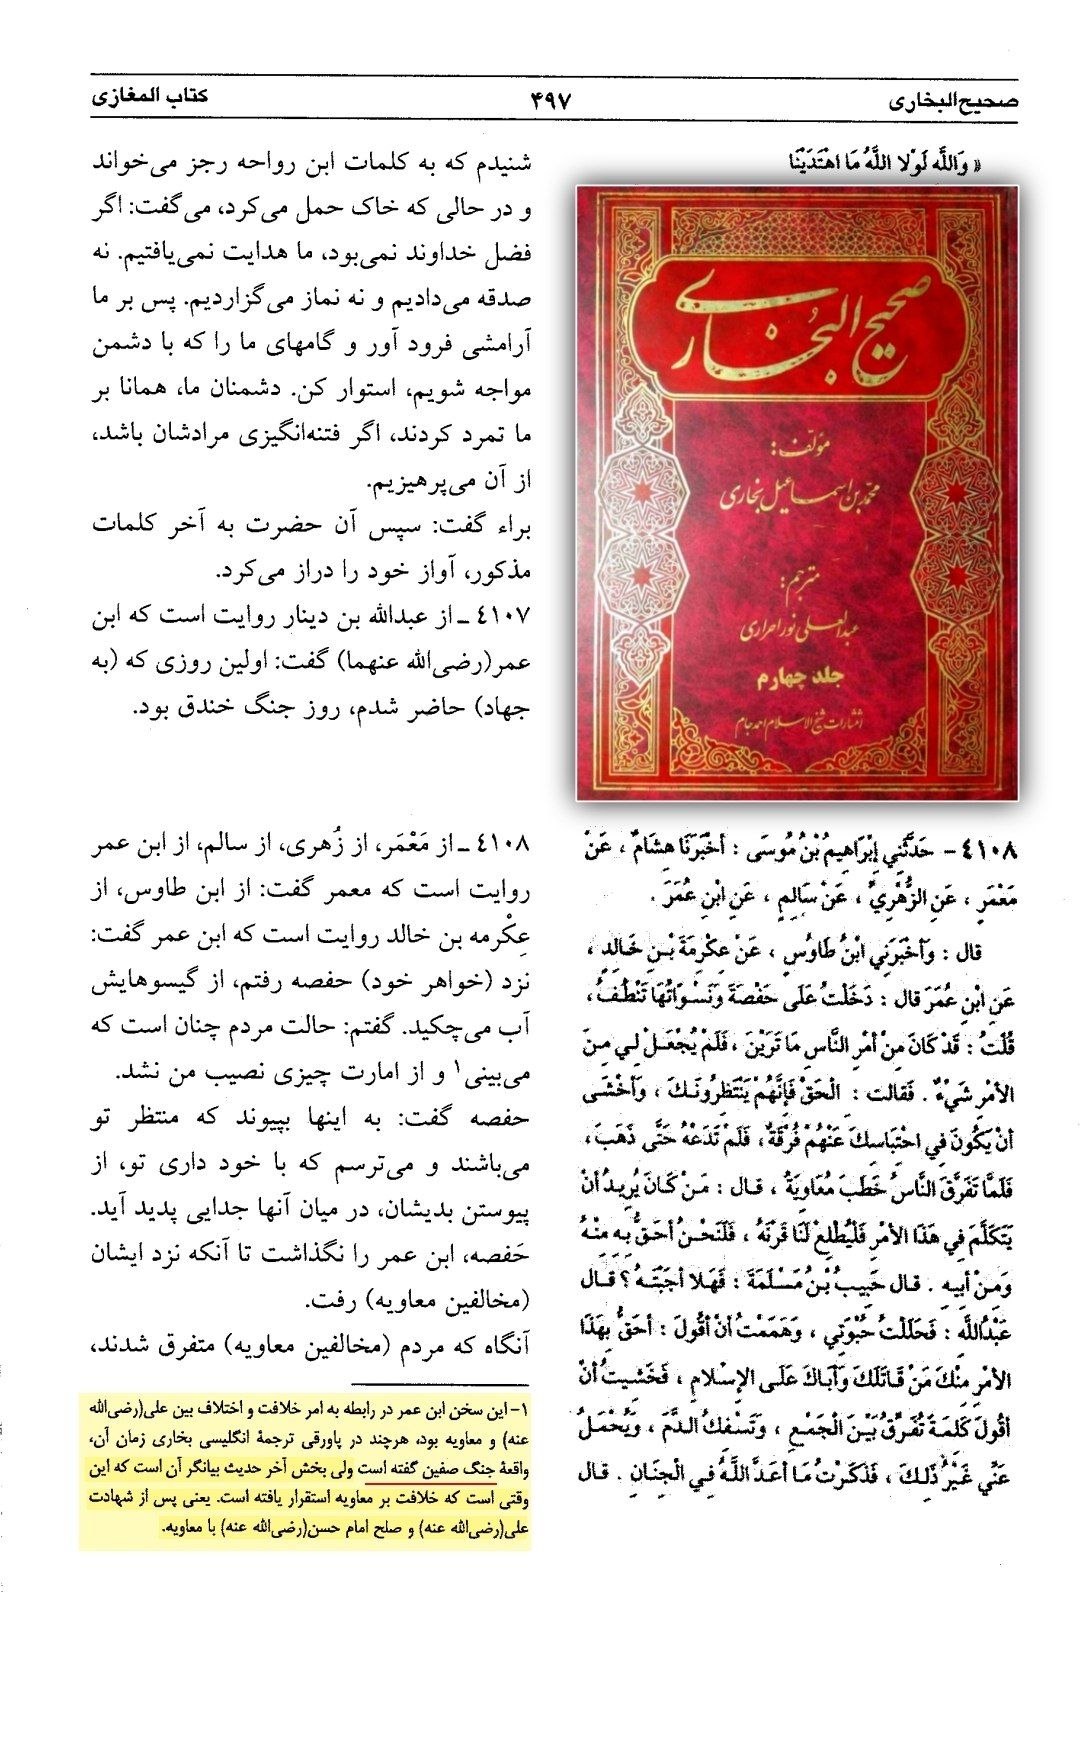 صحیح‌البخاری
۴۹۷
کتاب المغازی
« وَاللَّه لَوْلا اللَّهُ مَا اهْتَدَيْنَا
صحیح البخاری
مؤلف:
محمد بن اسماعیل بخاری
مترجم:
عبدالعلی نور احراری
جلد چهارم
انتشارات شیخ الاسلام احمد جام
٤١٠٨ - حَدَّثَنِي إِبْرَاهِيمُ بْنُ مُوسَى : أخْبَرَنَا هِشَامٌ ، عَنْ
مَعْمَرٍ ، عَنِ الزُّهْرِيِّ ، عَنْ سَالِمٍ ، عَنِ ابْنِ عُمَرَ .
قال : وَأخْبَرَنِي ابْنُ طَاوُسٍ ، عَنْ عِكْرِمَةَ بْنِ خَالِدٍ ،
عَنِ ابْنِ عُمَرَ قال : دَخَلْتُ عَلَى حَفْصَةَ وَنَسْوَاتُهَا تَنْطُفُ ،
قُلْتُ : قَدْ كَانَ مِنْ أمْرِ النَّاسِ مَا تَرَيْنَ ، فَلَمْ يُجْعَلْ لِي مِنَ
الأمْرِ شَيْءٌ . فَقالت : الْحَقْ فَإِنَّهُمْ يَنْتَظِرُونَكَ ، وَأخْشَى
أنْ يَكُونَ فِي احْتِبَاسِكَ عَنْهُمْ فُرْقَةٌ ، فَلَمْ تَدَعْهُ حَتَّى ذَهَبَ ،
فَلَمَّا تَفَرَّقَ النَّاسُ خَطَبَ مُعَاوِيَةُ ، قال : مَنْ كَانَ يُرِيدُ أنْ
يَتَكَلَّمَ فِي هَذَا الأمْرِ فَلْيُطْلِعْ لَنَا قَرْنَهُ ، فَلَنَحْنُ أحَقُّ بِهِ مِنْهُ
وَمِنْ أبِيهِ . قال حَبِيبُ بْنُ مَسْلَمَةَ : فَهَلا أجَبْتَهُ ؟ قال
عَبْدُاللَّهِ : فَحَلَلْتُ حُبْوَتِي ، وَهَمَمْتُ أنْ أقُولَ : أحَقُّ بِهَذَا
الأمْرِ مِنْكَ مَنْ قَاتَلَكَ وَأبَاكَ عَلَى الإِسْلامِ ، فَخَشِيتُ أنْ
أقُولَ كَلِمَةً تُفَرِّقُ بَيْنَ الْجَمْعِ ، وَتَسْفِكُ الدَّمَ ، وَيُحْمَلُ
عَنِّي غَيْرُ ذَلِكَ ، فَذَكَرْتُ مَا أعَدَّ اللَّهُ فِي الْجِنَانِ . قال
شنیدم که به کلمات ابن رواحه رجز می‌خواند
و در حالی که خاک حمل می‌کرد، می‌گفت: اگر
فضل خداوند نمی‌بود، ما هدایت نمی‌یافتیم. نه
صدقه می‌دادیم و نه نماز می‌گزاردیم. پس بر ما
آرامشی فرود آور و گامهای ما را که با دشمن
مواجه شویم، استوار کن. دشمنان ما، همانا بر
ما تمرد کردند، اگر فتنه‌انگیزی مرادشان باشد،
از آن می‌پرهیزیم.
براء گفت: سپس آن حضرت به آخر کلمات
مذکور، آواز خود را دراز می‌کرد.
٤١٠٧ ـ از عبدالله بن دینار روایت است که ابن
عمر(رضی‌الله عنهما) گفت: اولین روزی که (به
جهاد) حاضر شدم، روز جنگ خندق بود.
٤١٠٨ ـ از مَعْمَر، از زُهری، از سالم، از ابن عمر
روایت است که معمر گفت: از ابن طاوس، از
عِکْرمه بن خالد روایت است که ابن عمر گفت:
نزد (خواهر خود) حفصه رفتم، از گیسوهایش
آب می‌چکید. گفتم: حالت مردم چنان است که
می‌بینی۱ و از امارت چیزی نصیب من نشد.
حفصه گفت: به اینها بپیوند که منتظر تو
می‌باشند و می‌ترسم که با خود داری تو، از
پیوستن بدیشان، در میان آنها جدایی پدید آید.
حَفصه، ابن عمر را نگذاشت تا آنکه نزد ایشان
(مخالفین معاویه) رفت.
آنگاه که مردم (مخالفین معاویه) متفرق شدند،
۱- این سخن ابن عمر در رابطه به امر خلافت و اختلاف بین علی(رضی‌الله
عنه) و معاویه بود، هرچند در پاورقی ترجمهٔ انگلیسی بخاری زمان آن،
واقعهٔ جنگ صفین گفته است ولی بخش آخر حدیث بیانگر آن است که این
وقتی است که خلافت بر معاویه استقرار یافته است. یعنی پس از شهادت
علی(رضی‌الله عنه) و صلح امام حسن(رضی‌الله عنه) با معاویه.